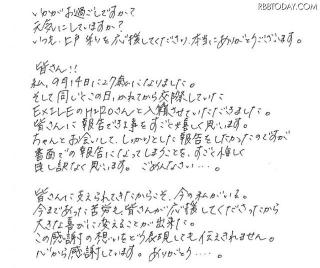 RBBTODAY.COM
いかがお過ごしですか?
元気にしていますか?
いつも上戸彩を応援してくださり、本当にありがとうございます。
皆さん!!
私、9月14日に27歳になりました。
そして同じくこの日、かねてから交際していた
EXILEのHIROさんと入籍させていただきました。
皆さんに報告できる事をすごく嬉しく思います。
ちゃんとお会いして、しっかりとした報告をしたかったのですが
書面での報告になってしまうことを、すごく悔しく
申し訳なく思います。ごめんなさい...。
皆さんに支えられてきたからこそ、今の私がいる。
今まであった苦労も、皆さんが応援してくださったから
大きな喜びに変えることが出来た。
この感謝の想いをどう表現しても伝えきれません。
心から感謝しています。ありがとう...。